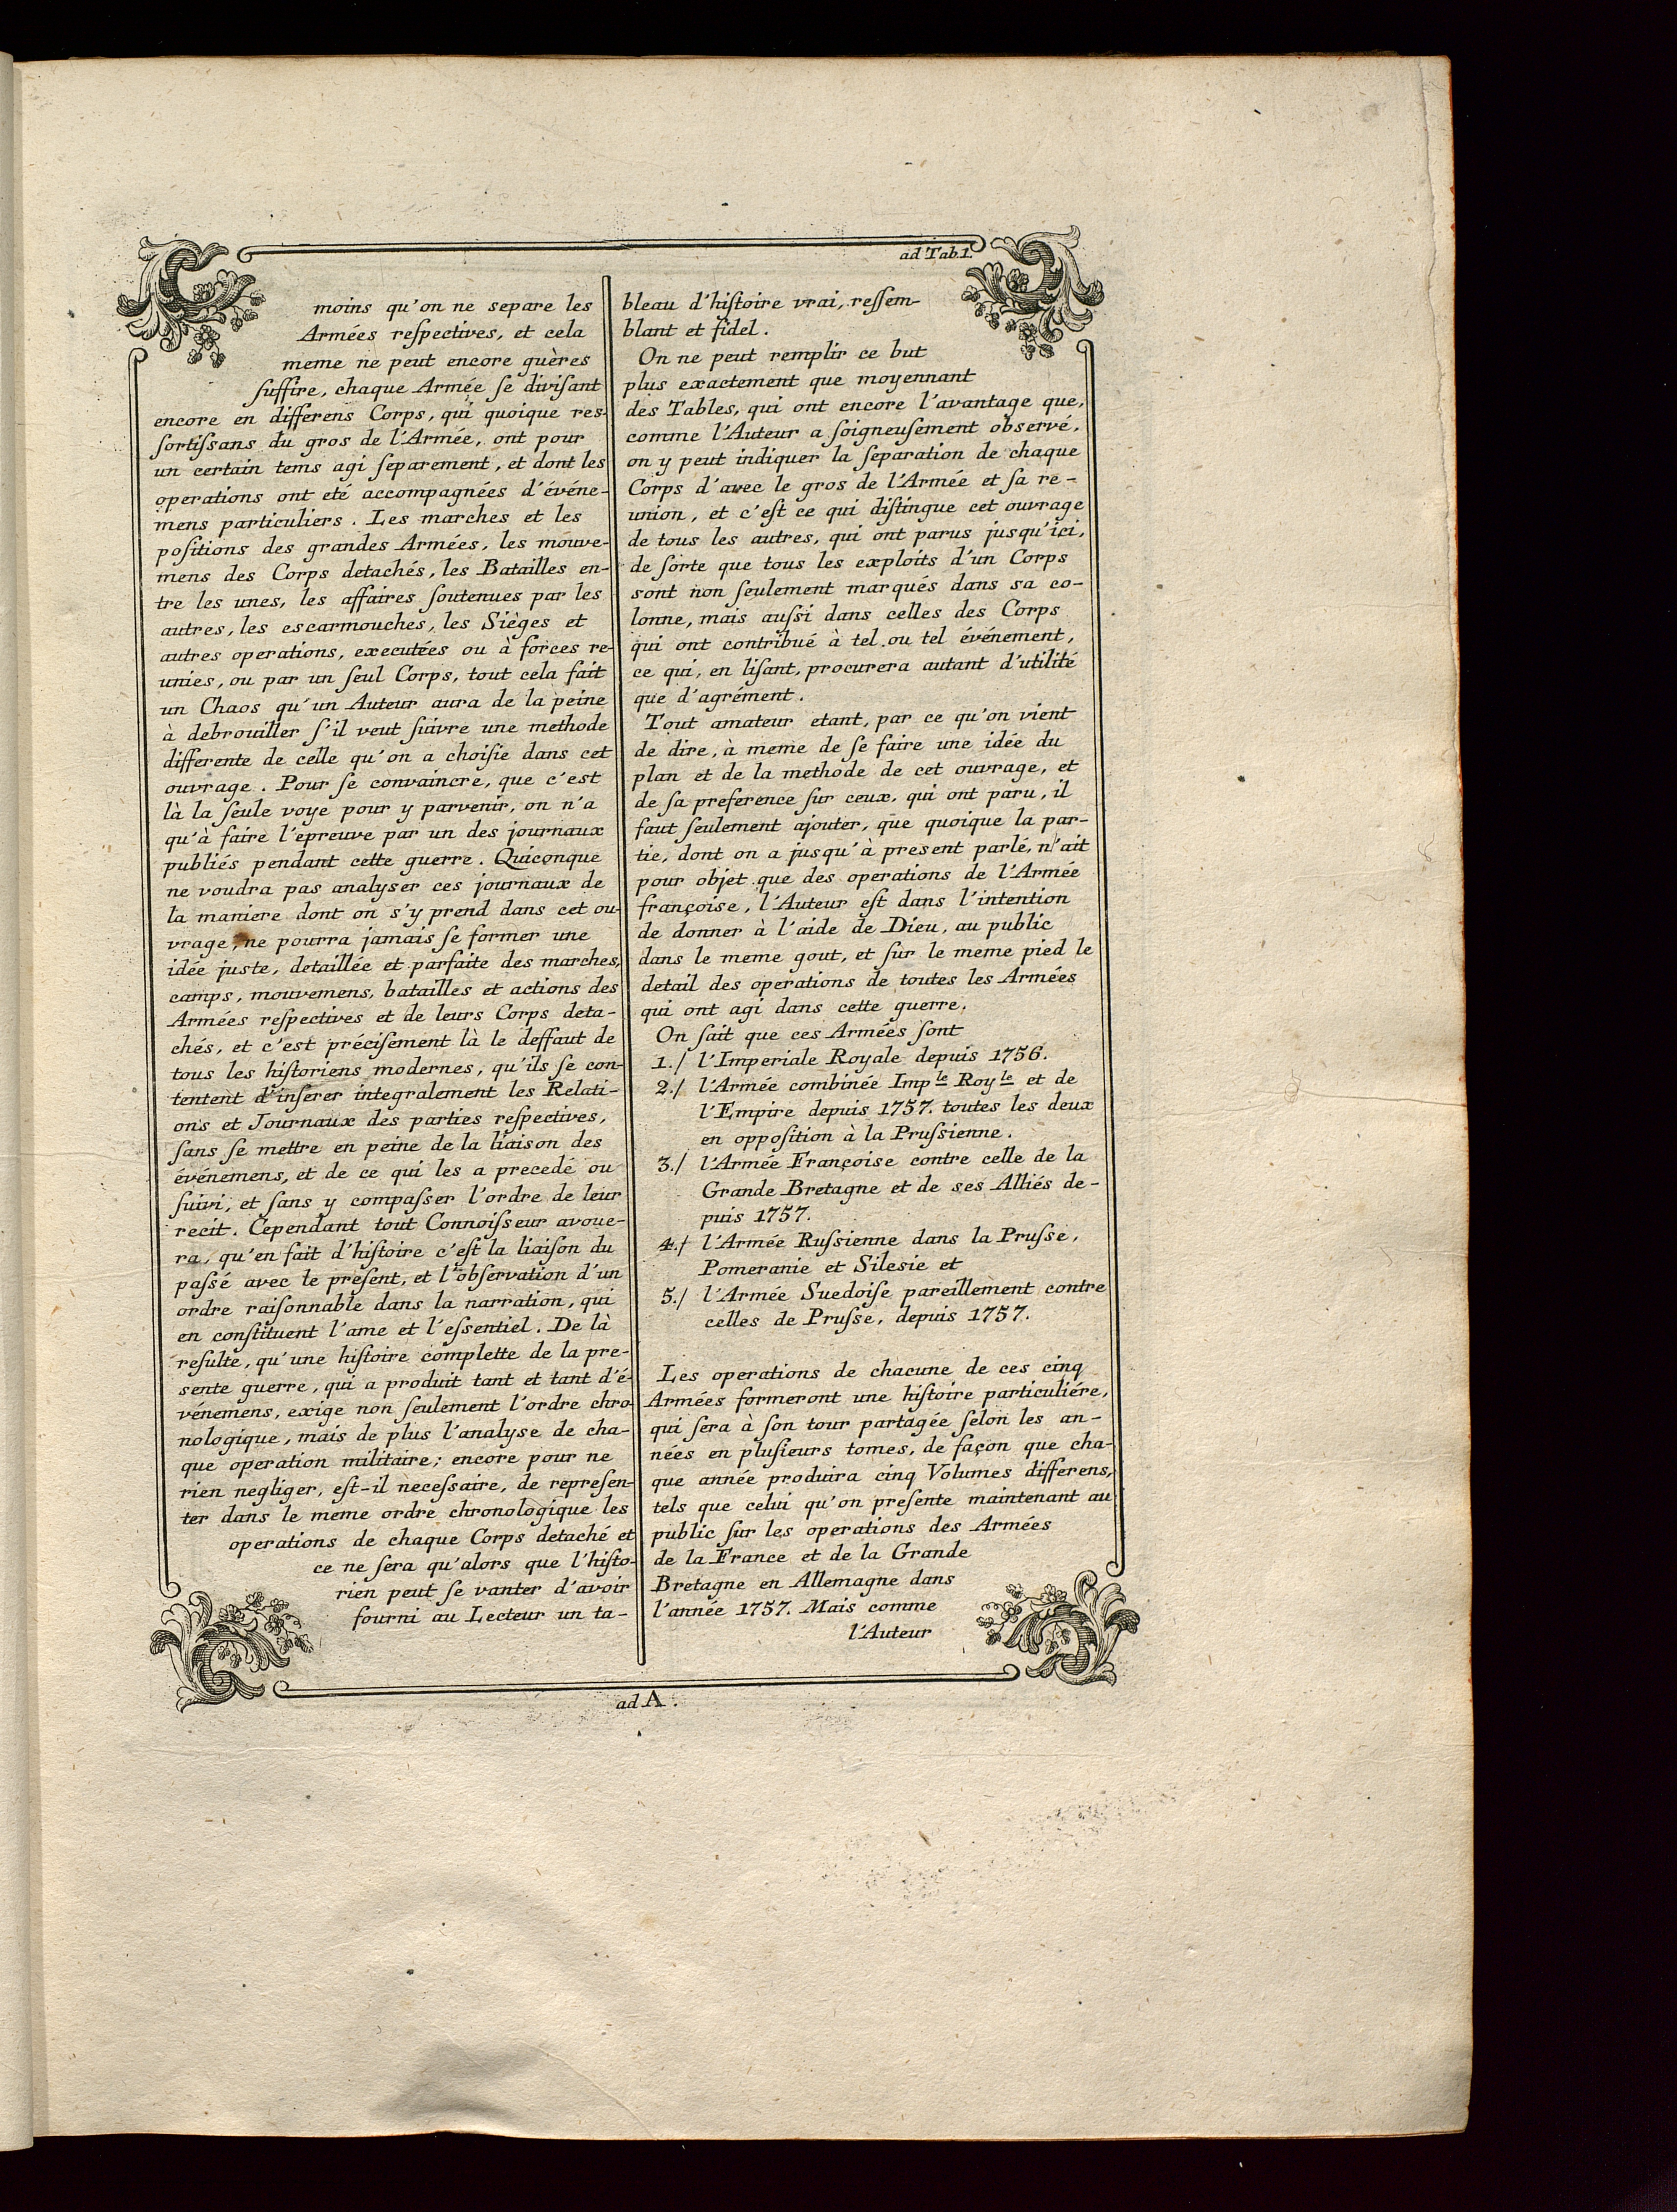 ad Tab.1.
moins qu'on ne separe les
Armées reſpectives, et cela
meme ne peut encore guères
ſuffire, chaque Armée ſe diviſant
encore en differens Corps, qui quoique res-
ſortiſsans du gros de l'Armée, ont pour
un certain tems agi ſeparement, et dont les
operations ont eté accompagnées d'événe-
mens particuliers. Les marches et les
poſitions des grandes Armées, les mouve-
mens des Corps detachés, les Batailles en-
tre les unes, les affaires ſoutenues par les
autres, les escarmouches, les Sièges et
autres operations, executées ou à forces re-
unies, ou par un ſeul Corps, tout cela fait
un Chaos qu'un Auteur aura de la peine
à debrouiller ſ'il veut ſuivre une methode
differente de celle qu'on a choiſie dans cet
ouvrage. Pour ſe convaincre, que c'est
là la ſeule voye pour y parvenir, on n'a
qu'à faire l'epreuve par un des journaux
publiés pendant cette guerre. Quiconque
ne voudra pas analyser ces journaux de
la maniere dont on s'y prend dans cet ou-
vrage, ne pourra jamais ſe former une
idée juste, detaillée et parfaite des marches,
camps, mouvemens, batailles et actions des
Armées reſpectives et de leurs Corps deta-
chés, et c'est préciſement là le deffaut de
tous les hiſtoriens modernes, qu'ils ſe con-
tentent d'inſerer integralement les Relati-
ons et Journaux des parties reſpectives,
ſans ſe mettre en peine de la liaiſon des
événemens, et de ce qui les a precedé ou
ſuivi, et ſans y compaſser l'ordre de leur
recit. Cependant tout Connoiſseur avoue-
ra, qu'en fait d'hiſtoire c'eſt la liaiſon du
paſsé avec le preſent, et l'obſervation d'un
ordre raiſonnable dans la narration, qui
en conſtituent l'ame et l'eſsentiel. De là
reſulte, qu'une hiſtoire complette de la pre-
sente guerre, qui a produit tant et tant d'é-
vénemens, exige non ſeulement l'ordre chro-
nologique, mais de plus l'analyse de cha-
que operation militaire; encore pour ne
rien negliger, eſt-il neceſsaire, de repreſen-
ter dans le meme ordre chronologique les
operations de chaque Corps detaché et
ce ne ſera qu'alors que l'hiſto-
rien peut ſe vanter d'avoir
fourni au Lecteur un ta-
bleau d'hiſtoire vrai, reſſem-
blant et fidel.
On ne peut remplir ce but
plus exactement que moyennant
des Tables, qui ont encore l'avantage que,
comme l'Auteur a ſoigneuſement obſervé,
on y peut indiquer la ſeparation de chaque
Corps d'avec le gros de l'Armée et ſa re-
union, et c'eſt ce qui diſtingue cet ouvrage
de tous les autres, qui ont parus jusqu'ici,
de ſorte que tous les exploits d'un Corps
sont non ſeulement marqués dans sa co-
lonne, mais auſsi dans celles des Corps
qui ont contribué à tel ou tel événement,
ce qui, en liſant, procurera autant d'utilité
que d'agrément.
Tout amateur etant, par ce qu'on vient
de dire, à meme de ſe faire une idée du
plan et de la methode de cet ouvrage, et
de ſa preference ſur ceux, qui ont paru, il
faut ſeulement ajouter, que quoique la par-
tie, dont on a jusqu'à present parlé, n'ait
pour objet que des operations de l'Armée
françoise, l'Auteur eſt dans l'intention
de donner à l'aide de Dieu, au public
dans le meme gout, et ſur le meme pied le
detail des operations de toutes les Armées
qui ont agi dans cette guerre.
On ſait que ces Armées ſont
1./ l'Imperiale Royale depuis 1756.
2./ l'Armée combinée Imp.le Roy.le et de
l'Empire depuis 1757. toutes les deux
en oppoſition à la Pruſsienne.
3./ l'Armée Françoise contre celle de la
Grande Bretagne et de ses Alliés de-
puis 1757.
4./ l'Armée Ruſsienne dans la Pruſse,
Pomeranie et Silesie et
5./ l'Armée Suedoiſe pareillement contre
celles de Pruſse, depuis 1757.
Les operations de chacune de ces cinq
Armées formeront une hiſtoire particuliére,
qui ſera à ſon tour partagée ſelon les an-
nées en pluſieurs tomes, de façon que cha-
que année produira cinq Volumes differens,
tels que celui qu'on preſente maintenant au
public ſur les operations des Armées
de la France et de la Grande
Bretagne en Allemagne dans
l'année 1757. Mais comme
l'Auteur
ad A.